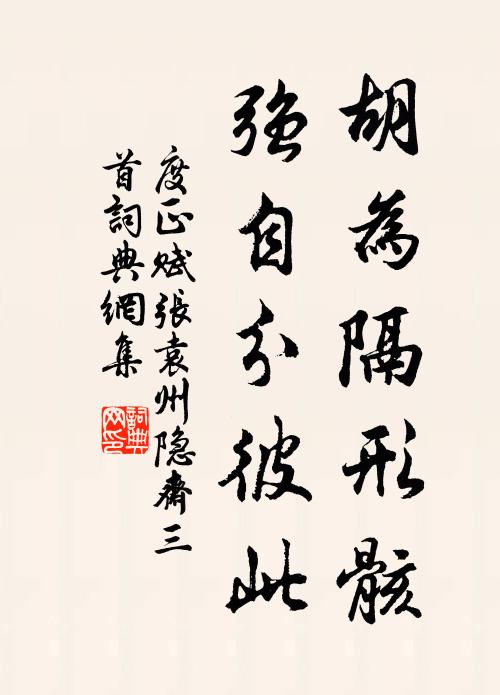 胡為隔形骸
強自分彼此
度正賦張袁州隐齋三
首詞典網集
詞典
网印